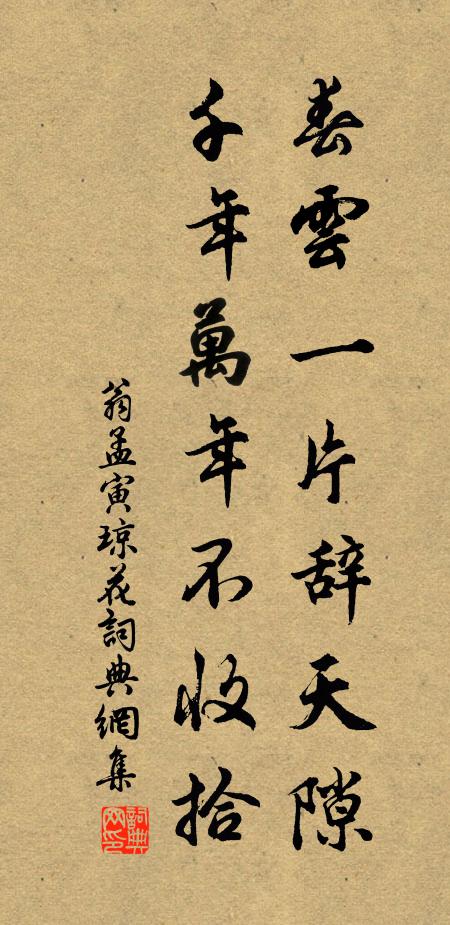 春雲一片辞天隙
千年萬年不收拾
翁孟寅琼花詞典網集
詞典网印